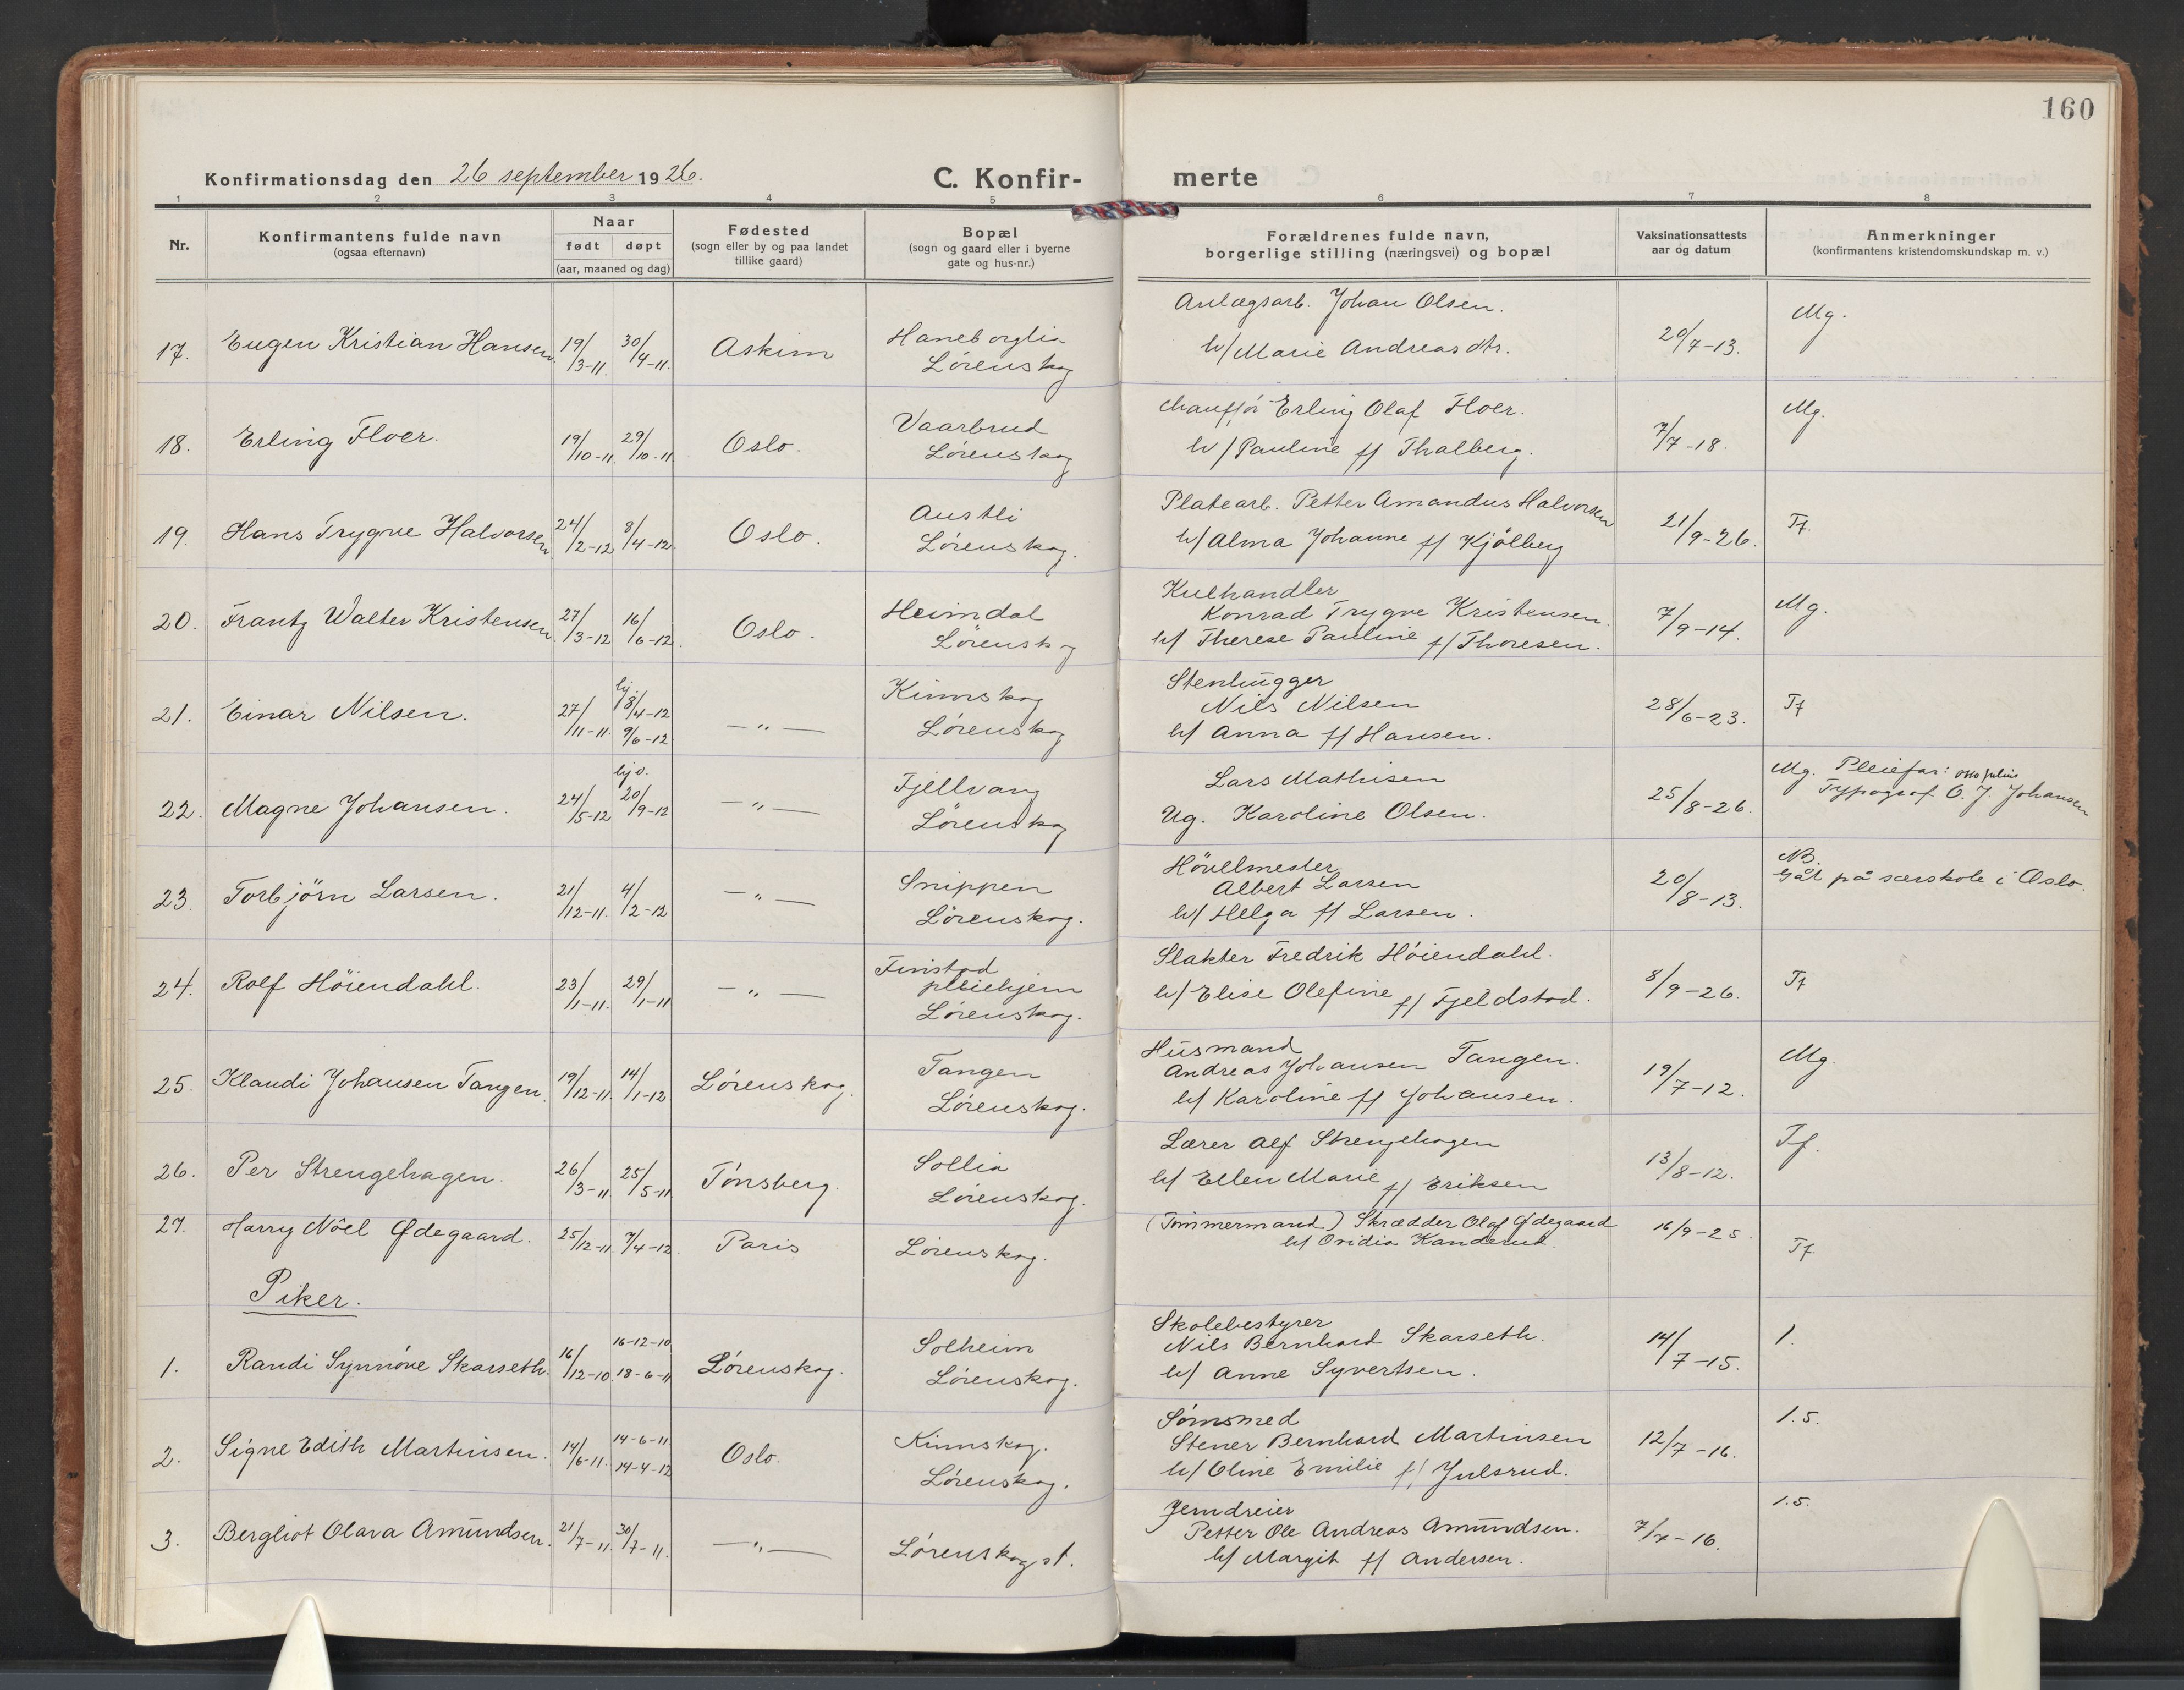 160
Konfirmationsdag den 26 september 1926.
C. Konfirmerte
1 2 3 4 5 6 7 8
Nr.
Konfirmantens fulde navn
(ogsaa efternavn)
Naar
født døpt
(aar, maaned og dag)
Fødested
(sogn eller by og paa landet
tillike gaard)
Bopæl
(sogn og gaard eller i byerne
gate og hus-nr.)
Forældrenes fulde navn,
borgerlige stilling (næringsvei) og bopæl
Vaksinationsattests
aar og datum
Anmerkninger
(konfirmantens kristendomskundskap m. v.)
17. Eugen Kristian Hansen 19/3-11. 30/4-11. Askim
Haneborglia
Lørenskog
Anlægsarb. Johan Olsen.
h/ Marie Andreasdtr.
20/7-13. Mg.
18. Erling Floer. 19/10-11 29/10-11 Oslo.
Vaarbrud
Lørenskog
Chauffør Erling Olaf Floer.
h/ Pauline f/ Thalberg.
7/7-18. Mg.
19. Hans Trygve Halvorsen 24/2-12 8/4-12. Oslo.
Austli
Lørenskog.
Platearb. Petter Amandus Halvorsen
h/ Alma Johanne f/ Kjölberg
21/9-26. Tf.
20. Frantz Walter Kristensen. 27/3-12 16/6-12. Oslo.
Heimdal
Lörenskog
Kulhandler
Konrad Trygve Kristensen.
h/ Therese Pauline f/ Thoresen.
7/9-14. Mg.
21. Einar Nilsen. 27/11-11. hj. 8/4-12 9/6-12 — " —
Kinnskog
Lørenskog
Stenhugger
Nils Nilsen
h/ Anna f/ Hansen.
28/6-23. Tf
22. Magne Johansen. 24/5-12 hj.d. 20/9-12 — " —
Fjellvang
Lørenskog
Lars Mathisen
Ug. Karoline Olsen.
25/8-26.
Mg. Pleiefar:
Typograf O. J. Johansen
23. Torbjörn Larsen. 21/12-11. 4/2-12 — " —
Snippen
Lørenskog.
Hövelmester
Albert Larsen
h/ Helga f/ Larsen.
20/8-13.
NB.
Gåt på særskole i Oslo.
24. Rolf Höiendahl. 23/1-11. 29/1-11 — " —
Finstad
pleiehjem
Lørenskog.
Slakter Fredrik Höiendahl.
h/ Elise Olefine f/ Fjeldstad.
8/9-26. Tf
25. Klaudi Johansen Tangen. 19/12-11. 14/1-12. Lørenskog.
Tangen
Lørenskog.
Husmand
Andreas Johansen Tangen.
h/ Karoline f/ Johansen.
19/7-12. Mg.
26. Per Strengehagen. 26/3-11 25/5-11. Tønsberg.
Sollia
Lørenskog.
Lærer Alf Strengehagen
h/ Ellen Marie f/ Eriksen
13/8-12. Tf.
27. Harry Nöel Ødegaard. 25/12-11 7/4-12. Paris Lørenskog.
(Tømmermand) Skrædder Olaf Ødegaard
h/ Ovidia Kanderud.
16/9-25. Tf
Piker.
1. Randi Synnøve Skarseth. 16/12-10. 16-12-10 18-6-11 Lørenskog.
Solheim
Lørenskog.
Skolebestyrer
Nils Bernhard Skarseth.
h/ Anne Syvertsen.
14/7-15. 1.
2. Signe Edith Martinsen. 14/6-11. 14-6-11. 14-4-12 Oslo.
Kinnskog.
Lørenskog.
Sømsmed
Stener Bernhard Martinsen
h/ Oline Emilie f/ Julsrud.
12/7-16. 1.5.
3. Bergliot Olava Amundsen. 21/7-11 30/7-11. — " — Lørenskog st.
Jerndreier
Petter Ole Andreas Amundsen.
h/ Margit f/ Andersen.
7/7-16. 1.5.